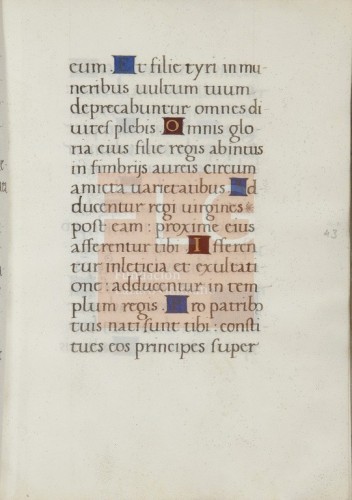 eum. Et filie tyri in mu
neribus uultum tuum
deprecabuntur omnes di
uites plebis. Omnis glo
ria eius filie regis abintus
in fimbrijs aureis circum
amicta uarietatibus. Ad
ducentur regi uirgines
post eam: proxime eius
afferentur tibi. Afferen
tur in leticia et exultati
one: adducentur in tem
plum regis. Pro patribo
tuis nati sunt tibi: consti
tues eos principes super
63